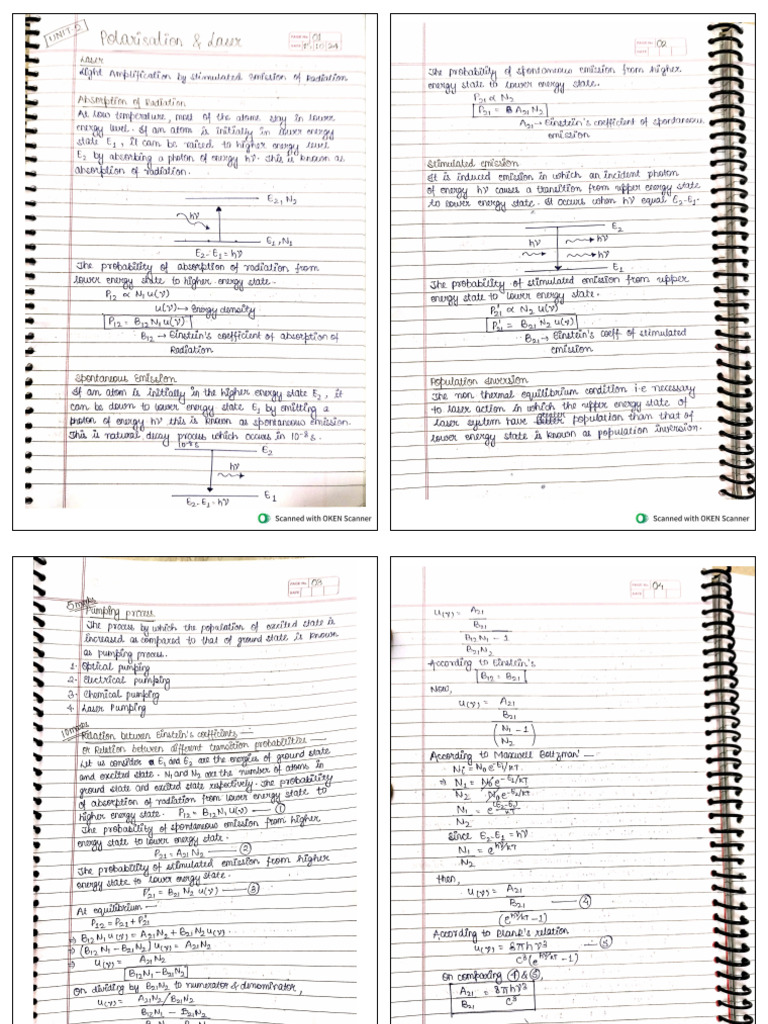 UNIT 5
Polarisation & Laser
PAGE No. 01
DATE 10 24
Laser
Light Amplification by stimulated emission of Radiation
Absorption of Radiation
At low temperature, most of the atoms stay in lower
energy level. If an atom is initially in lower energy
state E₁, it can be raised to higher energy level
E₂ by absorbing a photon of energy hν. This is known as
absorption of radiation.
E₂, N₂
hν
E₁, N₁
E₂-E₁=hν
The probability of absorption of radiation from
lower energy state to higher energy state.
P₁₂ ∝ N₁ u(ν)
u(ν) → Energy density
P₁₂ = B₁₂ N₁ u(ν)
B₁₂ → Einstein's coefficient of absorption of
Radiation
Spontaneous Emission
If an atom is initially in the higher energy state E₂, it
can be down to lower energy state E₁ by emitting a
photon of energy hν this is known as spontaneous emission.
This is natural decay process which occurs in 10⁻⁸ s.
10⁻⁸ s
E₂
hν
E₁
E₂-E₁=hν
Scanned with OKEN Scanner
PAGE No. 02
DATE
The probability of spontaneous emission from higher
energy state to lower energy state.
P₂₁ ∝ N₂
P₂₁ = A₂₁ N₂
A₂₁ → Einstein's coefficient of spontaneous
emission
Stimulated emission
It is induced emission in which an incident photon
of energy hν causes a transition from upper energy state
to lower energy state. It occurs when hν equal E₂-E₁.
E₂
hν
hν
hν
E₁
The probability of stimulated emission from upper
energy state to lower energy state.
P'₂₁ ∝ N₂ u(ν)
P'₂₁ = B₂₁ N₂ u(ν)
B₂₁ → Einstein's coeff of stimulated
emission
Population Inversion
The non thermal equilibrium condition i.e necessary
to laser action in which the upper energy state of
laser system have population than that of
lower energy state is known as population inversion.
Scanned with OKEN Scanner
PAGE No. 03
DATE
5 marks
Pumping process
The process by which the population of excited state is
increased as compared to that of ground state is known
as pumping process.
1. Optical pumping
2. Electrical pumping
3. Chemical pumping
4. Laser Pumping
10 marks
Relation between Einstein's coefficients
or Relation between different transition probabilities
Let us consider E₁ and E₂ are the energies of ground state
and excited state. N₁ and N₂ are the number of atoms in
ground state and excited state respectively. The probability
of absorption of radiation from lower energy state to
higher energy state. P₁₂ = B₁₂ N₁ u(ν) — ①
The probability of spontaneous emission from higher
energy state to lower energy state.
P₂₁ = A₂₁ N₂ — ②
The probability of stimulated emission from higher
energy state to lower energy state.
P'₂₁ = B₂₁ N₂ u(ν) — ③
At equilibrium —
P₁₂ = P₂₁ + P'₂₁
⇒ B₁₂ N₁ u(ν) = A₂₁ N₂ + B₂₁ N₂ u(ν).
⇒ (B₁₂ N₁ - B₂₁ N₂) u(ν) = A₂₁ N₂
⇒ u(ν) = A₂₁ N₂
[B₁₂ N₁ - B₂₁ N₂]
On dividing by B₂₁ N₂ to numerator & denominator,
u(ν) = A₂₁ N₂ / B₂₁ N₂
B₁₂ N₁ - B₂₁ N₂
PAGE No. 04
DATE
u(ν) = A₂₁
B₂₁
B₁₂ N₁ - 1
B₂₁ N₂
According to Einstein's
B₁₂ = B₂₁
Now,
u(ν) = A₂₁
B₂₁
(N₁ - 1)
N₂
According to Maxwell Boltzman' —
Nᵢ = N₀ e^-Eᵢ/KT
⇒ N₁ = N₀ e^-E₁/KT
N₂ N₀ e^-E₂/KT
N₁ = e^(E₂-E₁)/KT
N₂
Since E₂-E₁=hν
N₁ = e^hν/KT
N₂
then,
u(ν) = A₂₁
B₂₁ — ④
(e^hν/KT - 1)
According to Blank's relation
u(ν) = 8πhν³ — ⑤
C³(e^hν/KT - 1)
On comparing ④ & ⑤,
A₂₁ = 8πhν³
B₂₁ C³